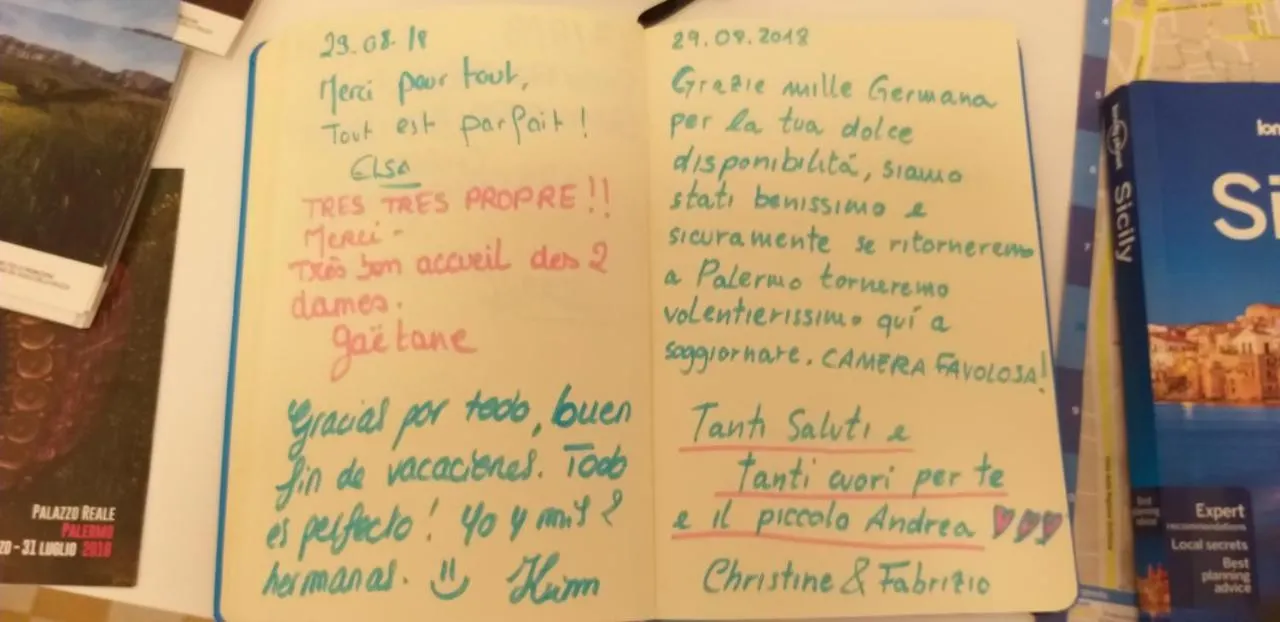 23.08.18
Merci pour tout,
Tout est parfait !
ELSA
TRES TRES PROPRE !!
Merci -
Très bon accueil des 2
dames.
Gaëtane
Gracias por todo, buen
fin de vacaciones. Todo
es perfecto! Yo y mis 2
hermanas.
29.08.2018
Grazie mille Germana
per la tua dolce
disponibilitá, siamo
stati benissimo e
sicuramente se ritorneremo
a Palermo torneremo
volentierissimo quí a
soggiornare. CAMERA FAVOLOSA!
Tanti Saluti e
tanti cuori per te
e il piccolo Andrea
Christine & Fabrizio
PALAZZO REALE
PALERMO
ZO - 31 LUGLIO 2018
lonely planet
Sicily
lon
Si
Expert
recommendations
Local secrets
Best
planning
advice